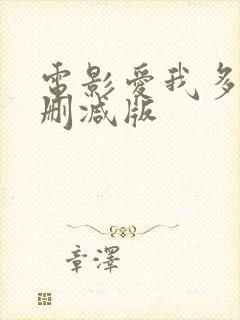 電影愛我多
删减版
章澤